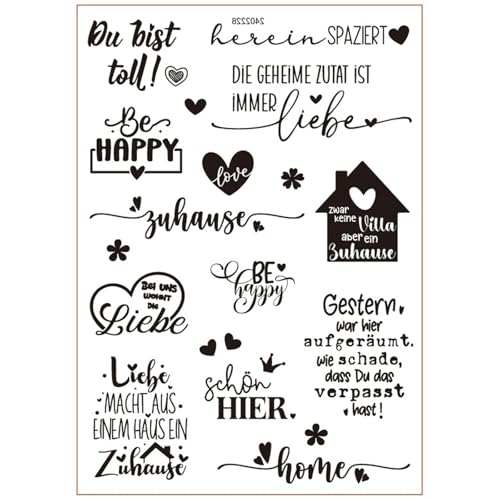 Du bist
toll!
2402228
herein SPAZIERT
DIE GEHEIME ZUTAT IST
IMMER
liebe
Be
HAPPY
love
zuhause
zwar
keine Villa
aber ein
Zuhause
BEI UNS
WOHNT DIE
Liebe
BE
happy
Gestern
war hier
aufgeräumt.
wie schade,
dass Du das
verpasst
hast!
Liebe
MACHT AUS
EINEM HAUS EIN
Zuhause
schön
HIER.
home